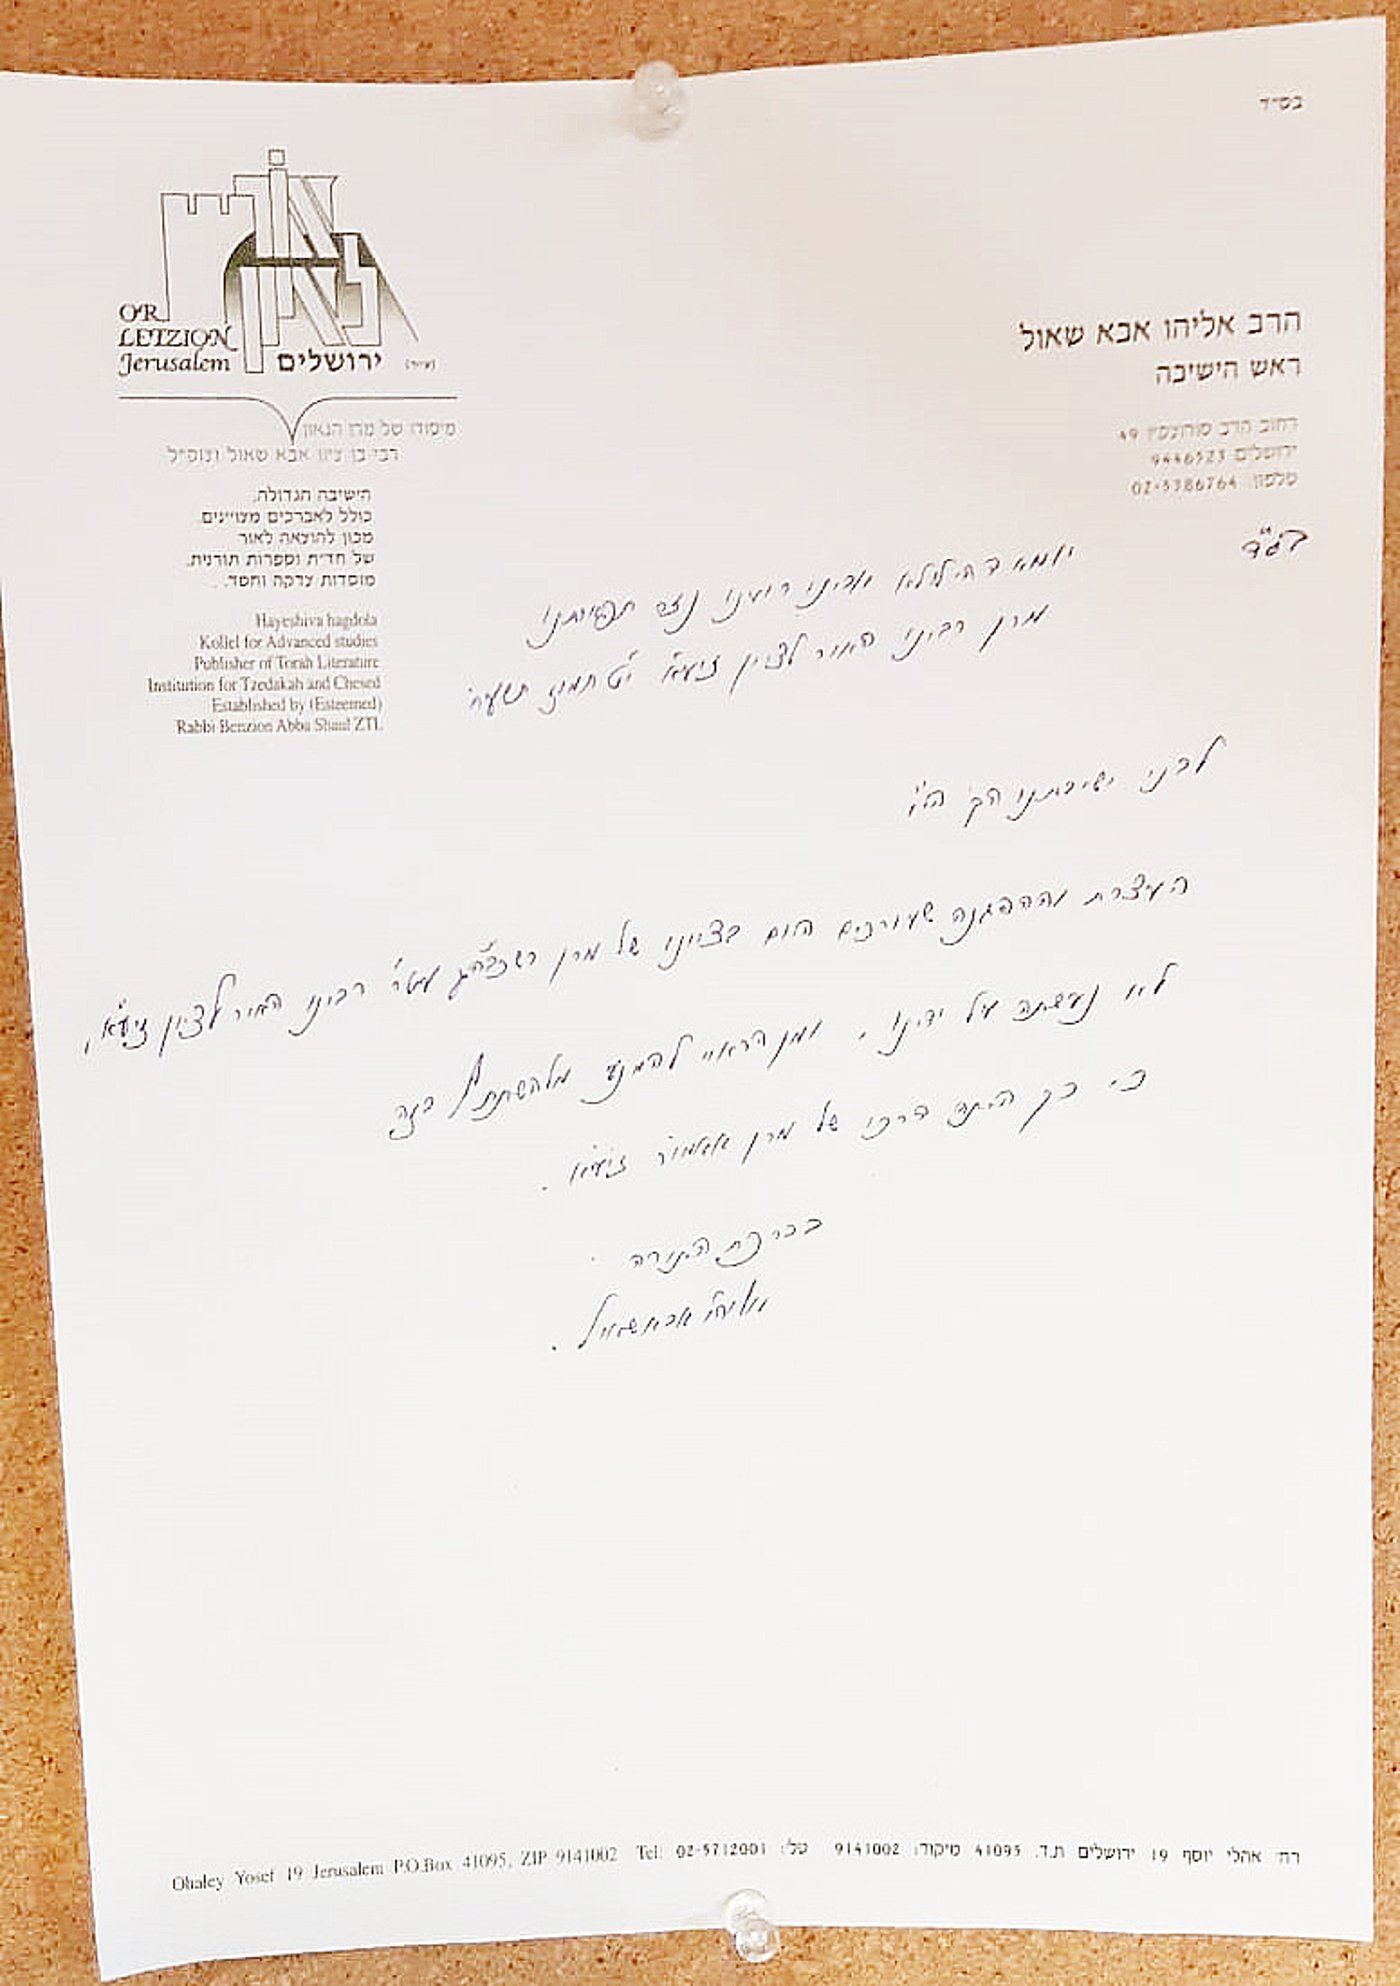 בס״ד
אור לציון
OR
LETZION
Jerusalem
ירושלים (ע״ר)
מיסודו של מרן הגאון
רבי בן ציון אבא שאול זצוק״ל
הישיבה הגדולה.
כולל לאברכים מצויינים.
מכון להוצאה לאור
של חז״ת וספרות תורנית.
מוסדות צדקה וחסד.
Hayeshiva hagdola
Kollel for Advanced studies
Publisher of Torah Literature
Institution for Tzedakah and Chesed
Established by (Esteemed)
Rabbi Benzion Abba Shaul ZTL
הרב אליהו אבא שאול
ראש הישיבה
רחוב הרב סורוצקין 49
ירושלים 9446523
טלפון: 02-5386764
יומא דהילולא אבינו רוענו נזר תפארתנו
מרן רבינו האור לציון זיע״א י״ט תמוז תשע״ח
לבני ישיבתנו הק׳ הי״ו
העצרת וההפגנה שעורכים היום בציונו של מרן עט״ר רבינו האור לציון זיע״א,
לא נעשתה על ידינו, ומן הראוי להמנע מלהשתתף בזה
כי כך היתה דרכו של מרן אאמו״ר זיע״א.
בברכת התורה
אליהו אבא שאול.
רח׳ אהלי יוסף 19 ירושלים ת.ד. 41095 מיקוד: 9141002 טל: 02-5712001 Ohaley Yosef 19 Jerusalem P.O.Box 41095, ZIP 9141002 Tel: